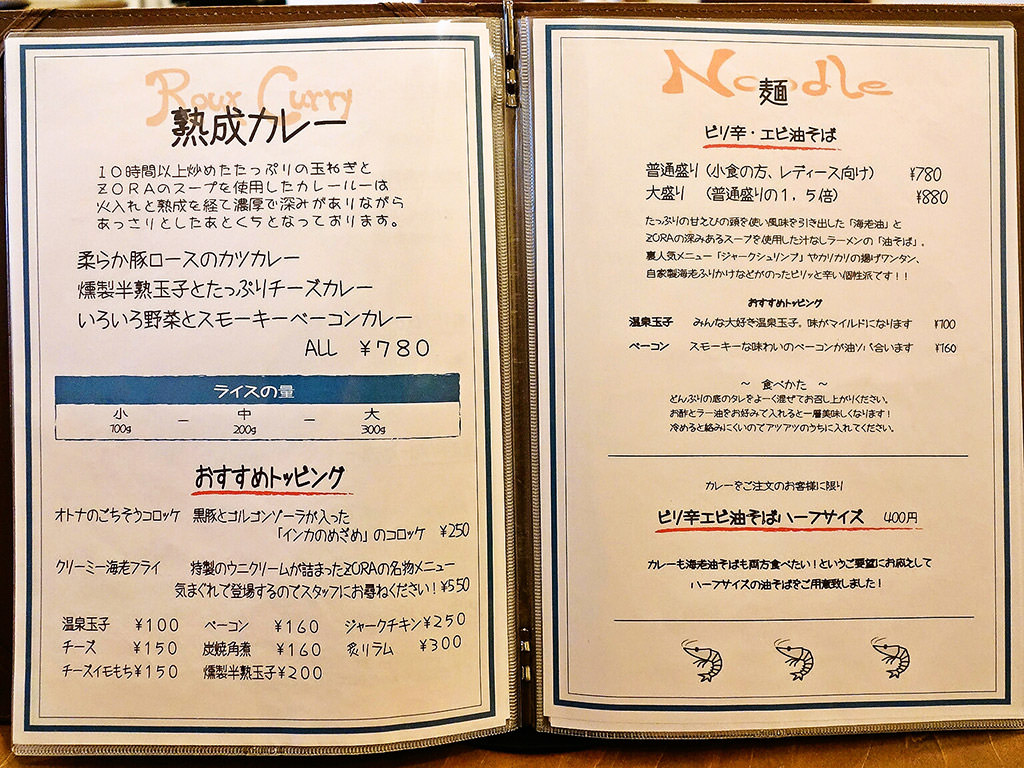 Roux Curry
熟成カレー
10時間以上炒めたたっぷりの玉ねぎと
ZORAのスープを使用したカレールーは
火入れと熟成を経て濃厚で深みがありながら
あっさりとしたあとくちとなっております。
柔らか豚ロースのカツカレー
燻製半熟玉子とたっぷりチーズカレー
いろいろ野菜とスモーキーベーコンカレー
ALL ¥780
ライスの量
小 － 中 － 大
100g 200g 300g
おすすめトッピング
オトナのごちそうコロッケ 黒豚とゴルゴンゾーラが入った
「インカのめざめ」のコロッケ ¥250
クリーミー海老フライ 特製のウニクリームが詰まったZORAの名物メニュー
気まぐれで登場するのでスタッフにお尋ねください！¥550
温泉玉子 ¥100 ベーコン ¥160 ジャークチキン¥250
チーズ ¥150 炭焼角煮 ¥160 炙りラム ¥300
チーズイモもち¥150 燻製半熟玉子¥200
Noodle
麺
ピリ辛・エビ油そば
普通盛り（小食の方、レディース向け） ¥780
大盛り （普通盛りの1.5倍） ¥880
たっぷりの甘えびの頭を使い風味を引き出した「海老油」と
ZORAの深みあるスープを使用した汁なしラーメンの「油そば」。
裏人気メニュー「ジャークシュリンプ」やカリカリの揚げワンタン、
自家製海老ふりかけなどがのったピリッと辛い個性派です！！
おすすめトッピング
温泉玉子 みんな大好き温泉玉子。味がマイルドになります ¥100
ベーコン スモーキーな味わいのベーコンが油ソバ合います ¥160
～ 食べかた ～
どんぶりの底のタレをよーく混ぜてお召し上がりください。
お酢とラー油をお好みで入れると一層美味しくなります！
冷めると絡みにくいのでアツアツのうちに入れてください。
カレーをご注文のお客様に限り
ピリ辛エビ油そばハーフサイズ 400円
カレーも海老油そばも両方食べたい！というご要望にお応えして
ハーフサイズの油そばをご用意致しました！